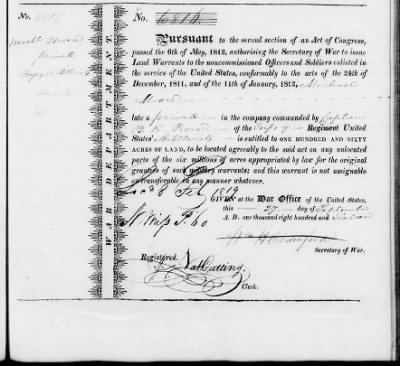 No. 6816
No. 6816.
Pursuant to the second section of an Act of Congress,
passed the 6th of May, 1812, authorising the Secretary of War to issue
Land Warrants to the noncommissioned Officers and Soldiers enlisted in
the service of the United States, conformably to the acts of the 24th of
December, 1811, and of the 11th of January, 1812, Michael
late a private in the company commanded by Captain
of the Corps of Regiment United
States' Artillery is entitled to ONE HUNDRED AND SIXTY
ACRES OF LAND, to be located agreeably to the said act on any unlocated
parts of the six millions of acres appropriated by law for the original
grantees of such military warrants; and this warrant is not assignable
or transferable in any manner whatever.
8 Feb 1819
GIVEN at the War Office of the United States,
this 27 day of September
A. D. one thousand eight hundred and Sixteen
Wm H Crawford
Secretary of War.
Registered. Nat Cutting
Clerk.
WAR DEPARTMENT.